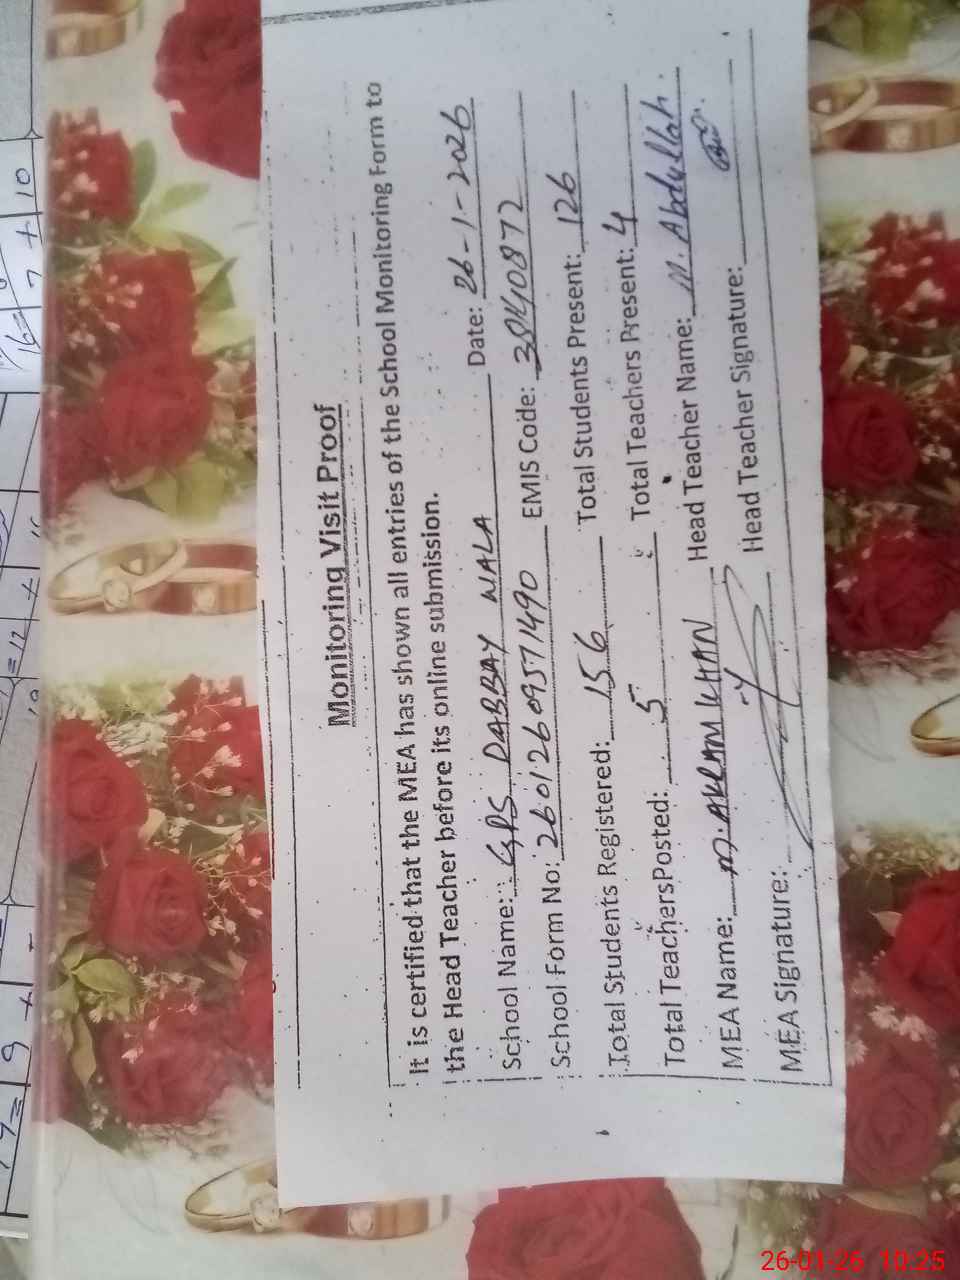 Monitoring Visit Proof
It is certified that the MEA has shown all entries of the School Monitoring Form to
the Head Teacher before its online submission.
School Name: GPS DABBAY WALA Date: 26-1-2026
School Form No: 260126095771490 EMIS Code: 38140872
Total Students Registered: 156 Total Students Present: 126
Total Teachers Posted: 5 Total Teachers Present: 4
MEA Name: M. AKRAM KHAN Head Teacher Name: M. Abdullah.
MEA Signature: Head Teacher Signature:
26-01-26 10:25